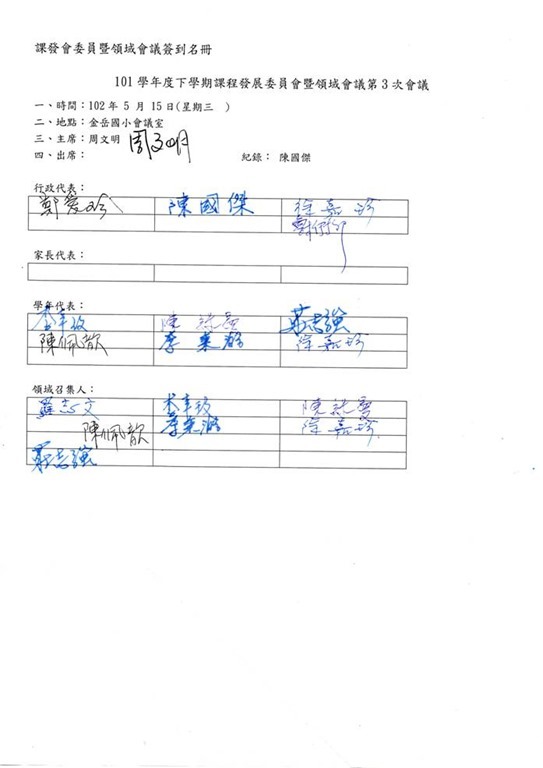 課發會委員暨領域會議簽到名冊
101 學年度下學期課程發展委員會暨領域會議第 3 次會議
一、時間：102 年 5 月 15 日(星期三 )
二、地點：金岳國小會議室
三、主席：周文明 周文明
四、出席： 紀錄： 陳國傑
行政代表：
鄭愛珍 陳國傑 徐嘉珍
家長代表：
學年代表：
莊志強
陳佩歆 徐嘉珍
領域召集人：
蘇志文
陳佩歆 徐嘉珍
莊志強